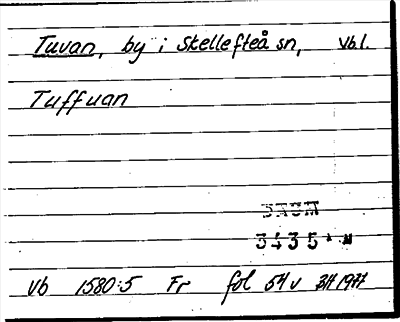 Tuvan, by i Skellefteå sn, Vbl.
Tuffuan
DAUM
3435
Vb 1580:5 Fr fol 54v 1977